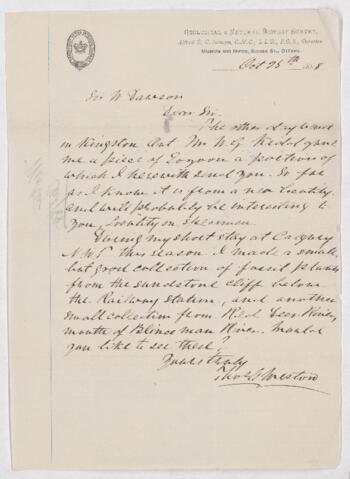 GEOLOGICAL & NATURAL HISTORY SURVEY,
Alfred R. C. Selwyn, C.M.G., L.L.D., F.R.S., Director
MUSEUM AND OFFICE, SUSSEX ST., OTTAWA.
Oct 25th 1888
Sir W Dawson
Dear Sir.
The other day
in Kingston Ont Mr W. G. Kidd gave
me a piece of Eozoon a portion of
which I herewith send you. So far
as I know it is from a new locality.
and will probably be interesting to
you, locality on specimen.
During my short stay at Calgary
N.W.T this season. I made a small
but good collection of fossil plants
from the sandstone cliff below
the Railway station, and another
small collection from Red Deer River,
mouth of Blindman River. Would
you like to see these?
Yours truly
Thos C Weston